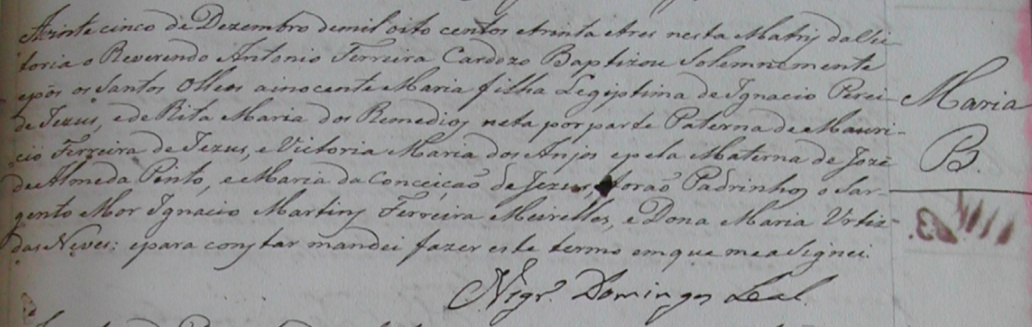 Avinte cinco de Dezembro demil oito centos etrinta etres nesta Matris da Vi-
toria o Reverendo Antonio Ferreira Cardozo Baptizou Solemnemente
epôs os Santos Olleos ainocente Maria filha Legiptima de Ignacio Perei-
de Jezus, ede Rita Maria dos Remedios neta por parte Paterna de Mauri-
cio Ferreira de Jezus, e Victoria Maria dos Anjos epela Materna de Jozé
de Almeda Pinto, e Maria da Conceição de Jezus, forão Padrinhos o Sar-
gento Mor Ignacio Martins Ferreira Meirelles, e Dona Maria
das Neves: epara constar mandei fazer este termo emque me aSignei.
Domingos Leal.
Maria
B.